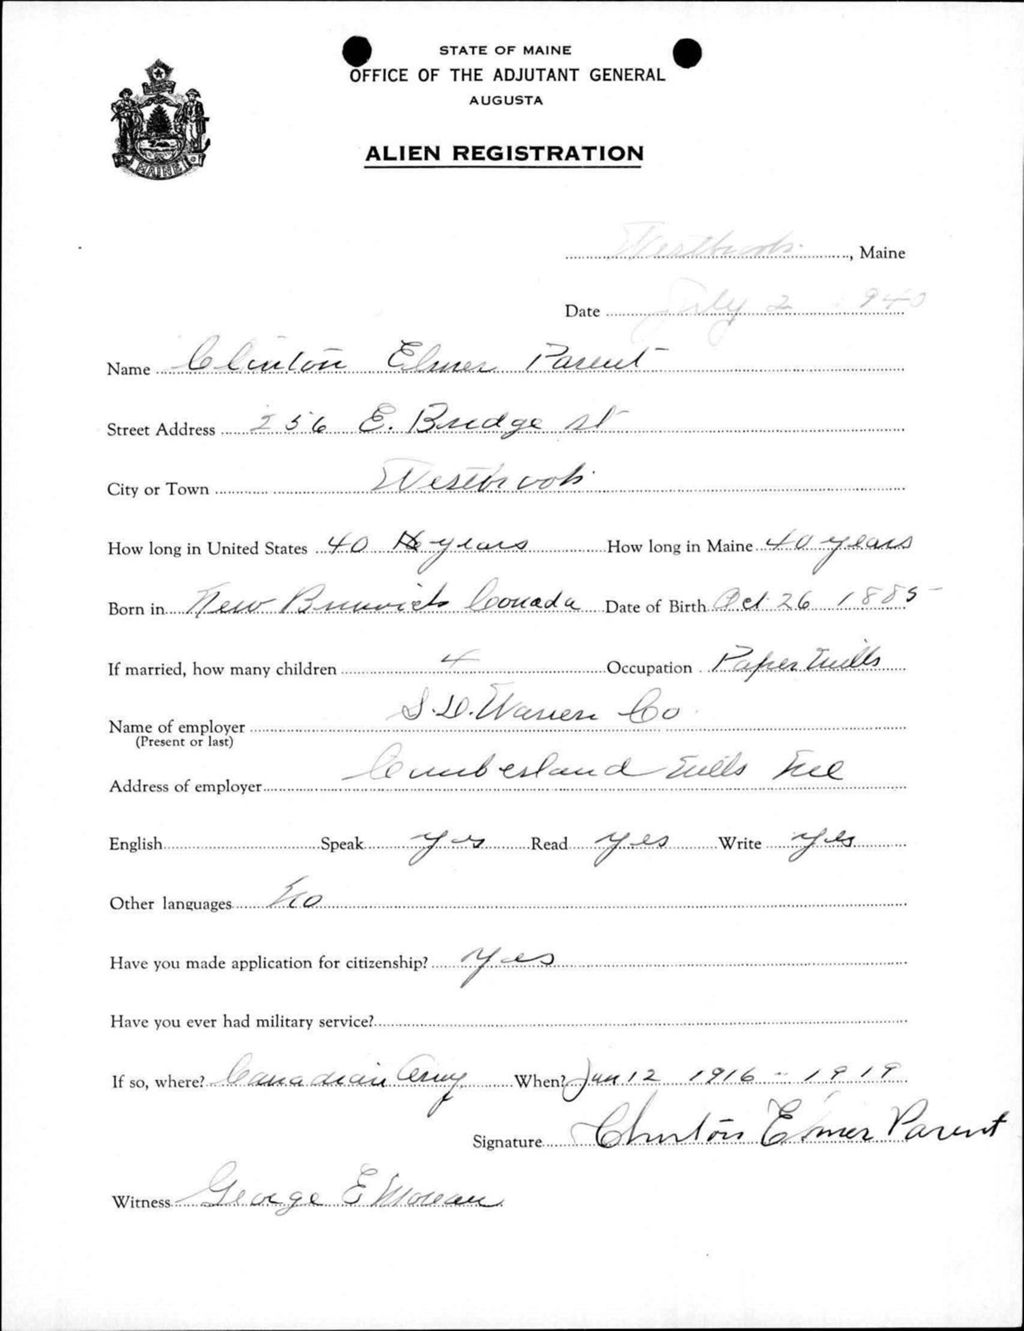 STATE OF MAINE
OFFICE OF THE ADJUTANT GENERAL
AUGUSTA
ALIEN REGISTRATION
MAINE
Westbrook, Maine
Date July 2 1940
Name Clinton Elmer Parent
Street Address 256 E. Bridge St
City or Town Westbrook
How long in United States 40 years How long in Maine 40 years
Born in New Brunwick Canada Date of Birth Oct 26 1885
If married, how many children 4 Occupation Paper Mills
Name of employer S.D. Warren Co
(Present or last)
Address of employer Cumberland Mills Me
English Speak yes Read yes Write yes
Other languages No
Have you made application for citizenship? yes
Have you ever had military service?
If so, where? Canadian Army When? Jun 12 1916 - 1919
Signature Clinton Elmer Parent
Witness George E Moreau